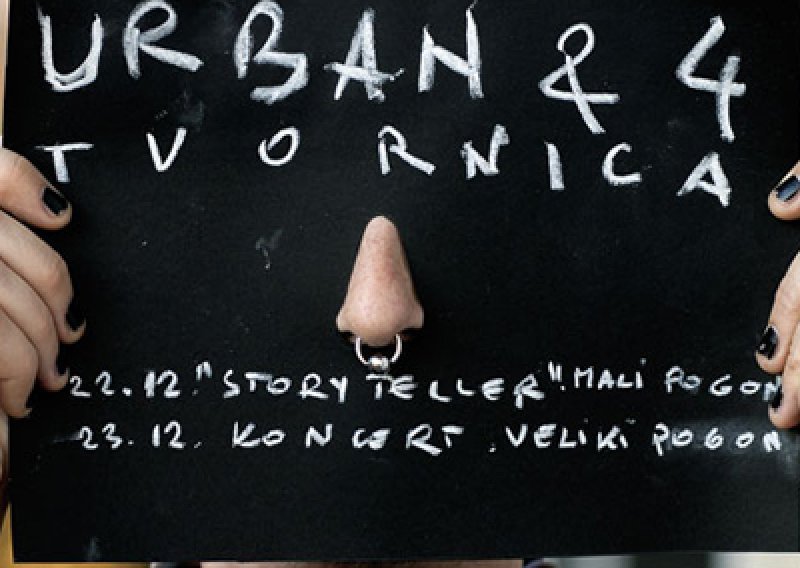 URBAN & 4
TVORNICA
22.12. "STORY TELLER". MALI POGON
23.12. KONCERT. VELIKI POGON